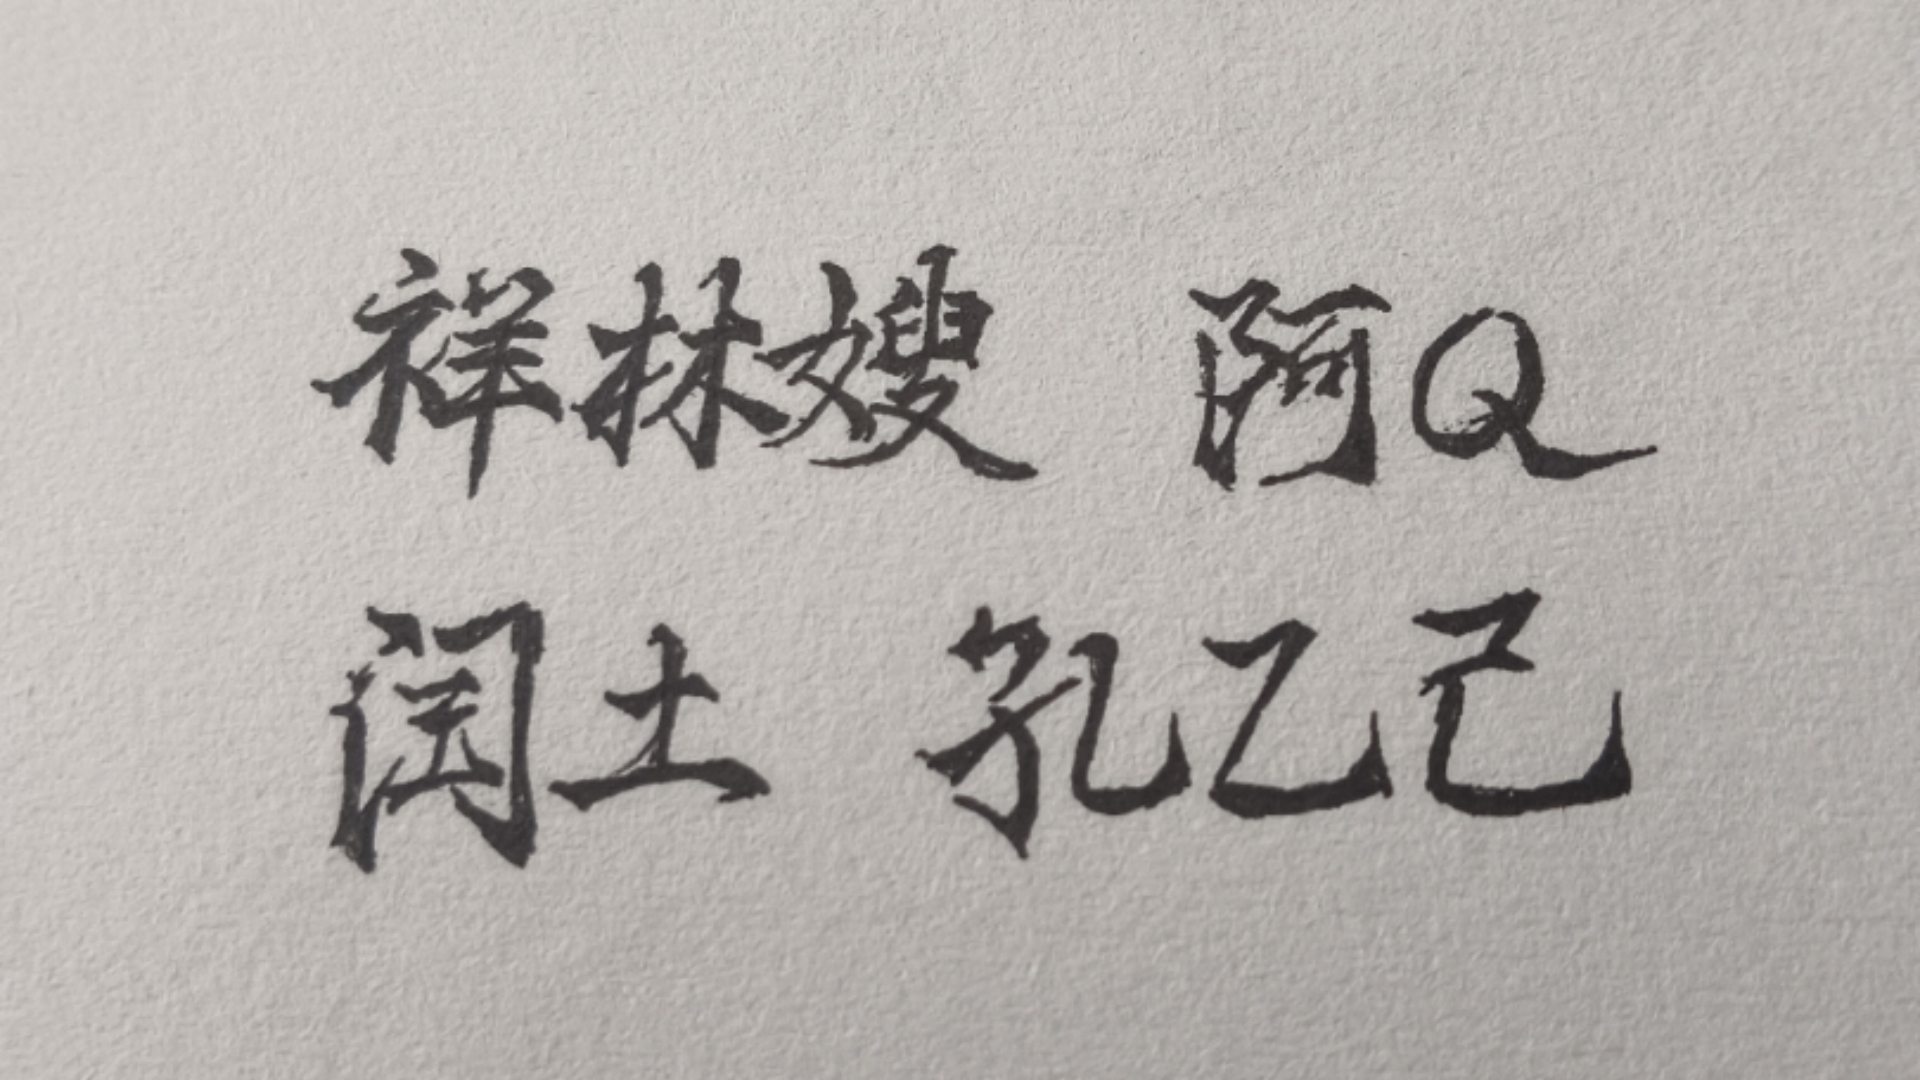 祥林嫂 阿Q
闰土 孔乙己